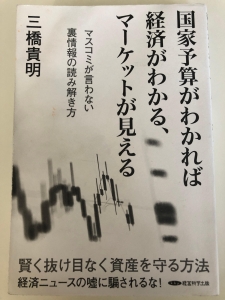 国家予算がわかれば
経済がわかる、
マーケットが見える
マスコミが言わない
裏情報の読み解き方
三橋貴明
賢く抜け目なく資産を守る方法
経済ニュースの嘘に騙されるな!
経営科学出版